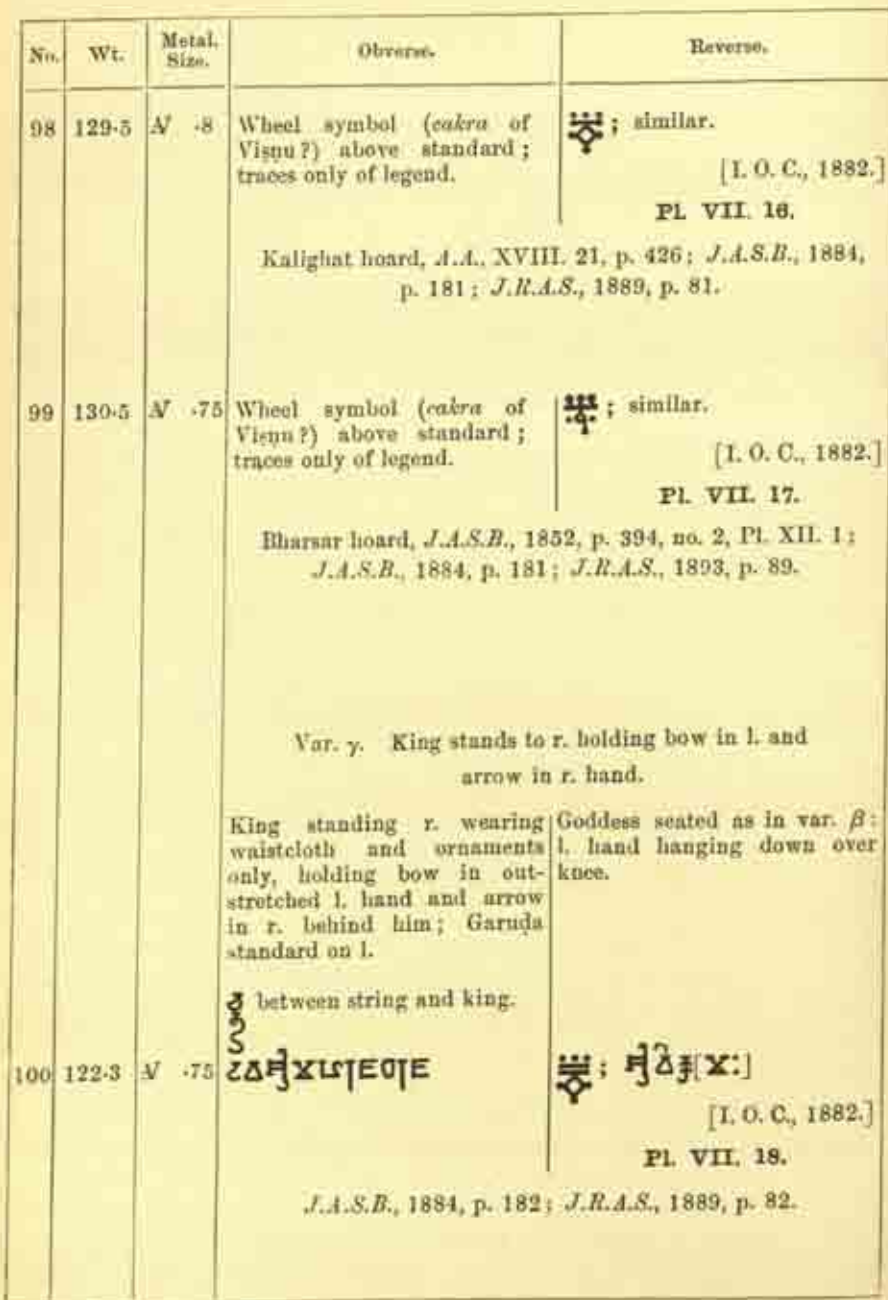 No. Wt. Metal. Size. Obverse. Reverse.
98 129·5 AV ·8 Wheel symbol (cakra of ; similar.
Viṣṇu?) above standard;
traces only of legend. [I. O. C., 1882.]
Pl. VII. 16.
Kalighat hoard, A.A., XVIII. 21, p. 426; J.A.S.B., 1884,
p. 181; J.R.A.S., 1889, p. 81.
99 130·5 AV ·75 Wheel symbol (cakra of ; similar.
Viṣṇu?) above standard;
traces only of legend. [I. O. C., 1882.]
Pl. VII. 17.
Bharsar hoard, J.A.S.B., 1852, p. 394, no. 2, Pl. XII. 1;
J.A.S.B., 1884, p. 181; J.R.A.S., 1893, p. 89.
Var. γ. King stands to r. holding bow in l. and
arrow in r. hand.
King standing r. wearing
waistcloth and ornaments
only, holding bow in out-
stretched l. hand and arrow
in r. behind him; Garuḍa
standard on l.
Goddess seated as in var. β:
l. hand hanging down over
knee.
between string and king.
100 122·3 AV ·75
[I. O. C., 1882.]
Pl. VII. 18.
J.A.S.B., 1884, p. 182; J.R.A.S., 1889, p. 82.